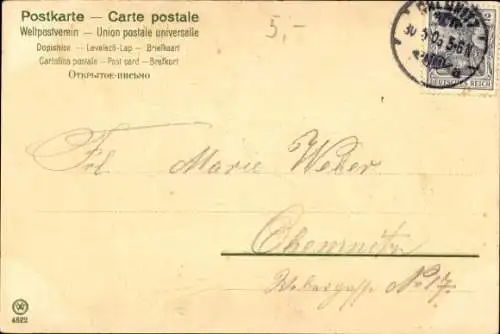 Postkarte – Carte postale
Weltpostverein – Union postale universelle
Dopisnice – Levelező-Lap – Briefkaart
Cartolina postale – Post card – Brefkort
Открытое-письмо
5,-
CHEMNITZ
5-6N
2
DEUTSCHES REICH
Frl. Marie Weber
Chemnitz
Webergasse No 17.
4522